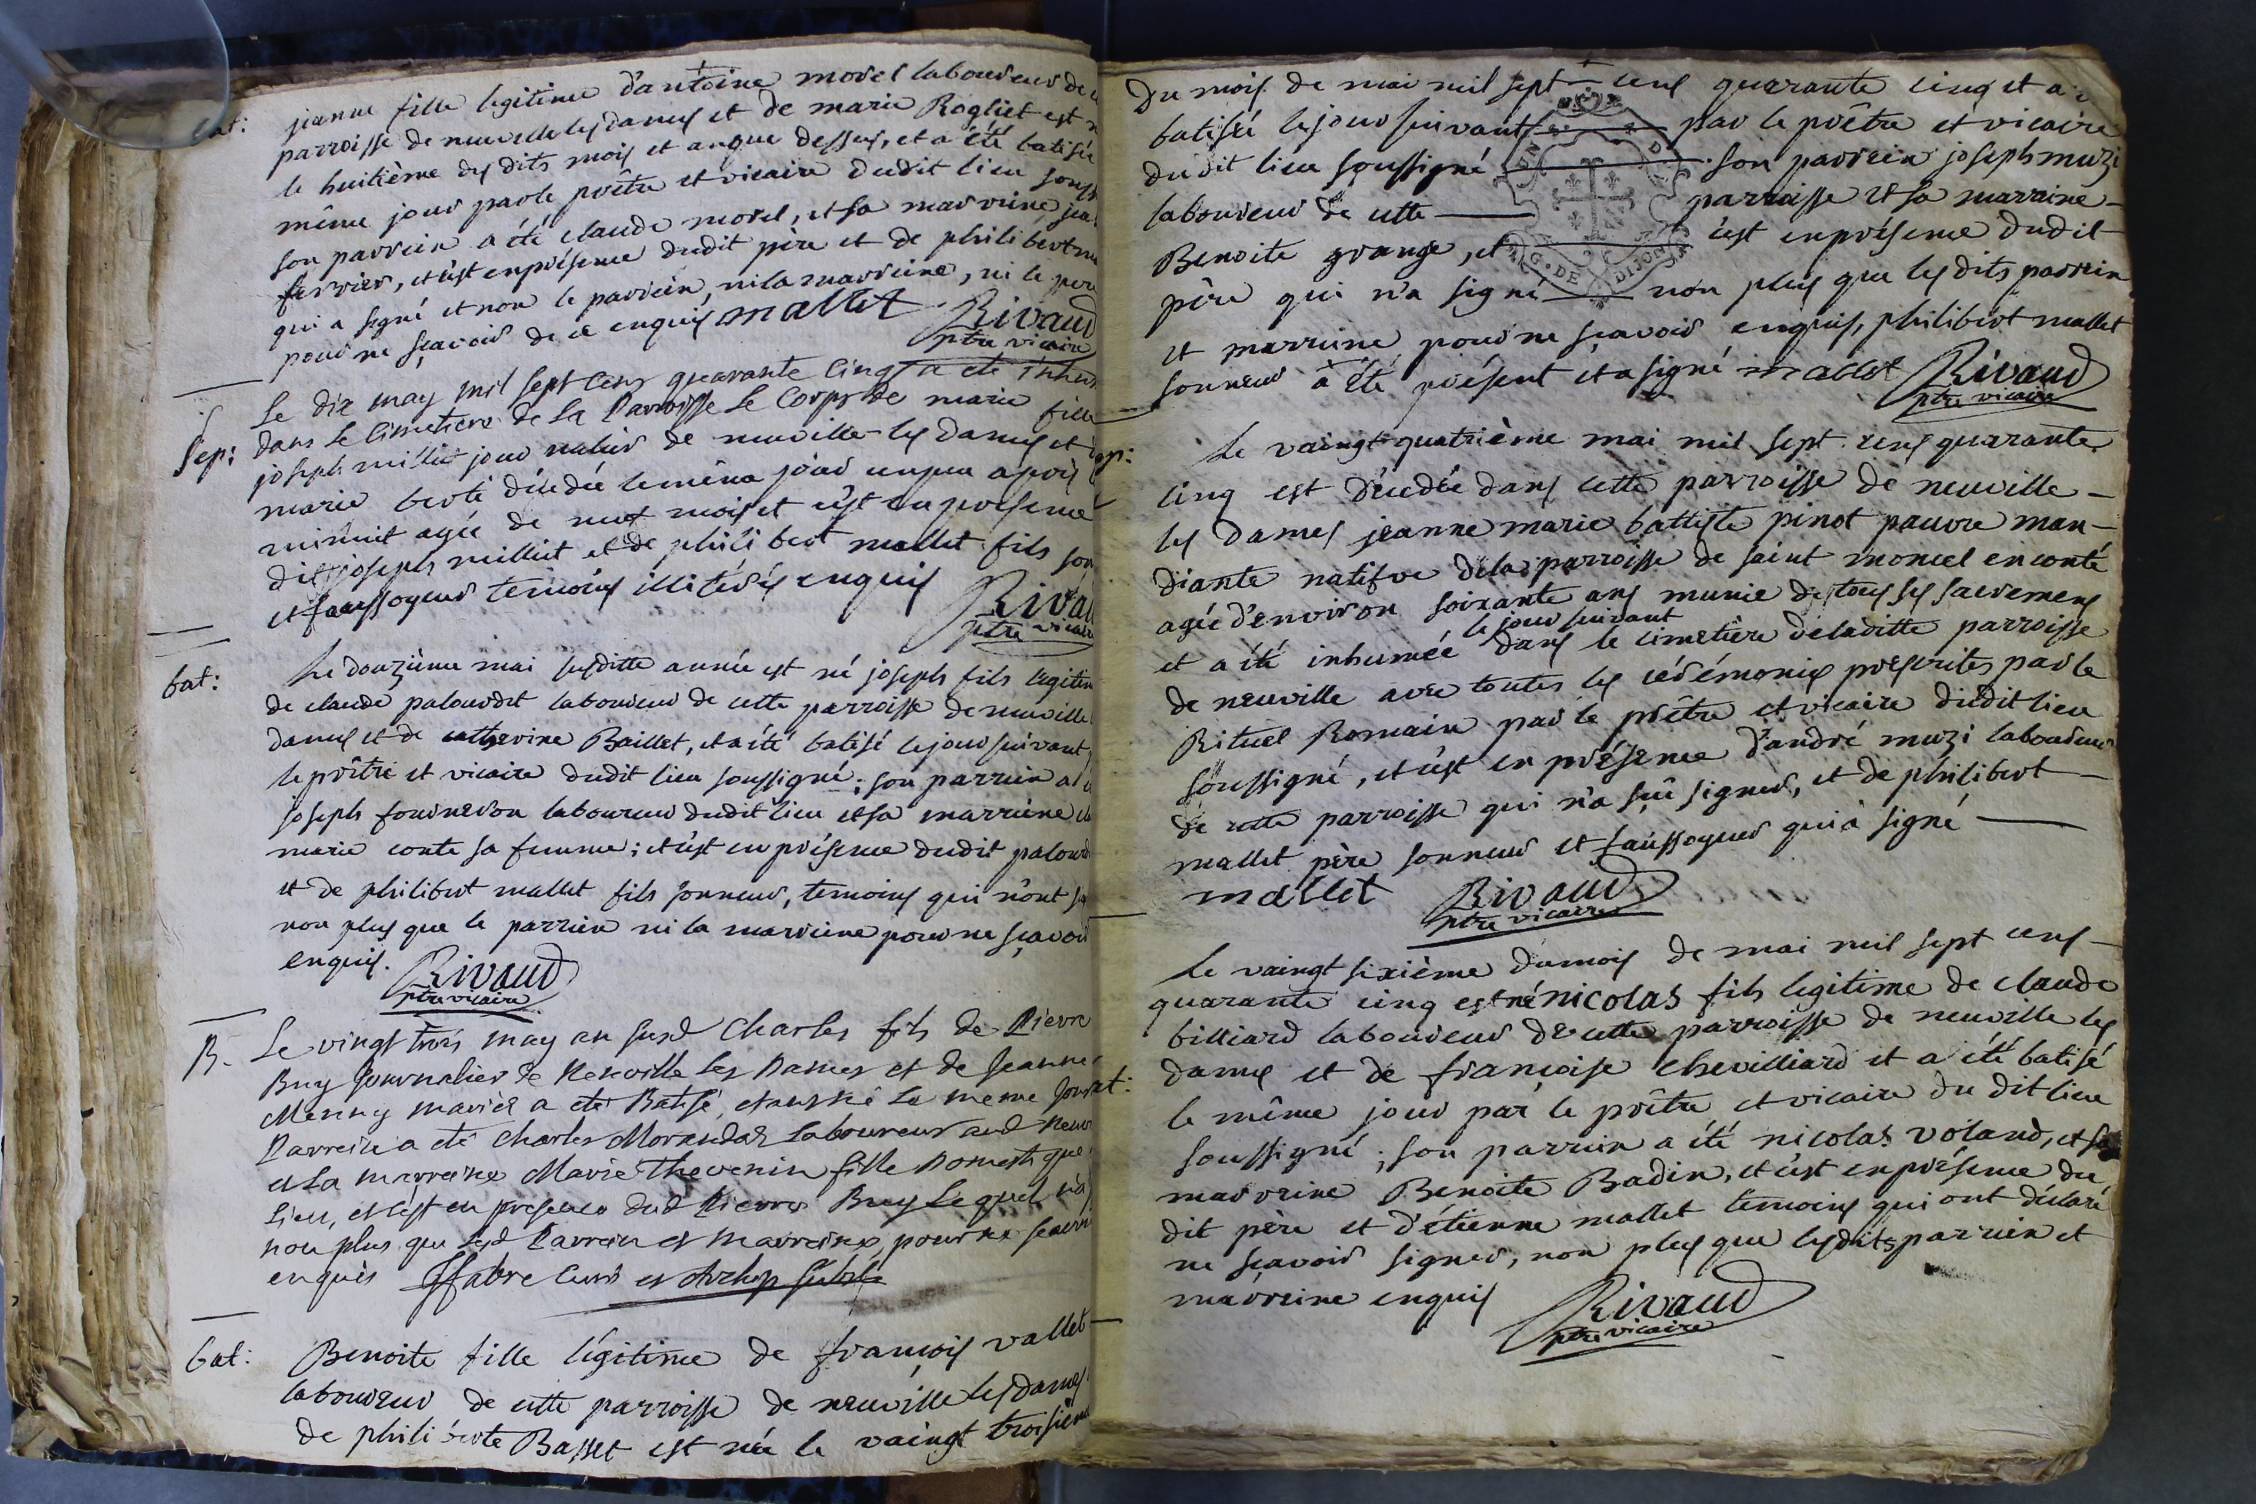 bat: jeanne fille legitime d'antoine morel laboureur de
parroisse de neuville les dames et de marie Rogliet est
le huitième des dits mois et an que dessus, et a été batisée
même jour par le prêtre et vicaire dudit lieu
son parrein a été claude morel, et sa marreine
ferrier, et c'est en présence dudit père et de philibert
qui a signé et non le parrein, ni la marreine, ni le père
pour ne sçavoir de ce enquis mallet Rivaud
ptre vicaire
Sep: Le dix may mil sept cens quarante cinq a eté
dans le cimetiere de la Parroisse le Corps de marie fille
joseph milliet jour nalier de neuville les dames et
marie berte décédée le même jour un peu après
minuit agée de neuf mois et c'est en présence
dit joseph milliet et de philibert mallet fils
et faussoyeur temoins illiterés enquis Rivaud
ptre vicaire
bat: Le douzième mai susditte année est né joseph fils legitim
de claude palourdet laboureur de cette parroisse de neuville
dames et de catherine Baillet, et a été batisé le jour suivant
le prêtre et vicaire dudit lieu soussigné; son parrein a
joseph fourneron laboureur dudit lieu et sa marreine
marie conte sa femme; et c'est en présence dudit palourd
et de philibert mallet fils sonneur, temoins qui n'ont
non plus que le parrein ni la marreine pour ne sçavoir
enquis. Rivaud
ptre vicaire
B. Le vingt trois may an susd Charles fils de Pierre
Buy Journalier de Neuville les Dames et de Jeanne
Menny mariés a eté Batisé, etant né le meme Jour
Parrein a eté Charles Morandas laboureur aud
et la marreine Marie Thevenin fille Domestique
lieu, et c'est en presence dud Pierre Buy lequel n'a
non plus que lesd Parrein et Marreine, pour ne scavoir
enquis ffabre Curé et Archip
bat: Benoite fille légitime de françois vallet
laboureur de cette parroisse de neuville les dames
de philiberte Basset est née le vaingt troisième
Du mois de mai mil sept cens quarante cinq et a
batisée le jour suivant par le prêtre et vicaire
du dit lieu soussigné son parrein joseph muzi
G. DE DIJON
laboureur de cette parroisse et sa marraine
Benoite grange, et c'est en présence dudit
père qui n'a signé non plus que les dits parrein
et marreine pour ne scavoir enquis, philibert mallet
sonneur a été présent et a signé mallet Rivaud
ptre vicaire
sep: Le vaingt quatrième mai mil sept cens quarante
cinq est décédée dans cette parroisse de neuville
les Dames jeanne marie battiste pinot pauvre man-
diante natifve de la parroisse de saint moncel en conté
agée d'environ soixante ans munie de tous ses sacremens
et a été inhumée le jour suivant dans le cimetière de laditte parroisse
de neuville avec toutes les cérémonies prescrites par le
Rituel Romain par le prêtre et vicaire dudit lieu
soussigné, et c'est en présence d'andré muzi laboureur
de cette parroisse qui n'a sçû signer, et de philibert
mallet père sonneur et faussoyeur qui a signé
mallet Rivaud
ptre vicaire
bat: Le vaingt sixième du mois de mai mil sept cens
quarante cinq est né nicolas fils legitime de claude
billiard laboureur de cette parroisse de neuville les
dames et de françoise chevilliard et a été batisé
le même jour par le prêtre et vicaire du dit lieu
soussigné; son parrein a été nicolas voland, et sa
marreine Benoite Badin, et c'est en présence du
dit père et d'étienne mallet temoins qui ont déclaré
ne sçavoir signer, non plus que lesdits parrein et
marreine enquis Rivaud
ptre vicaire